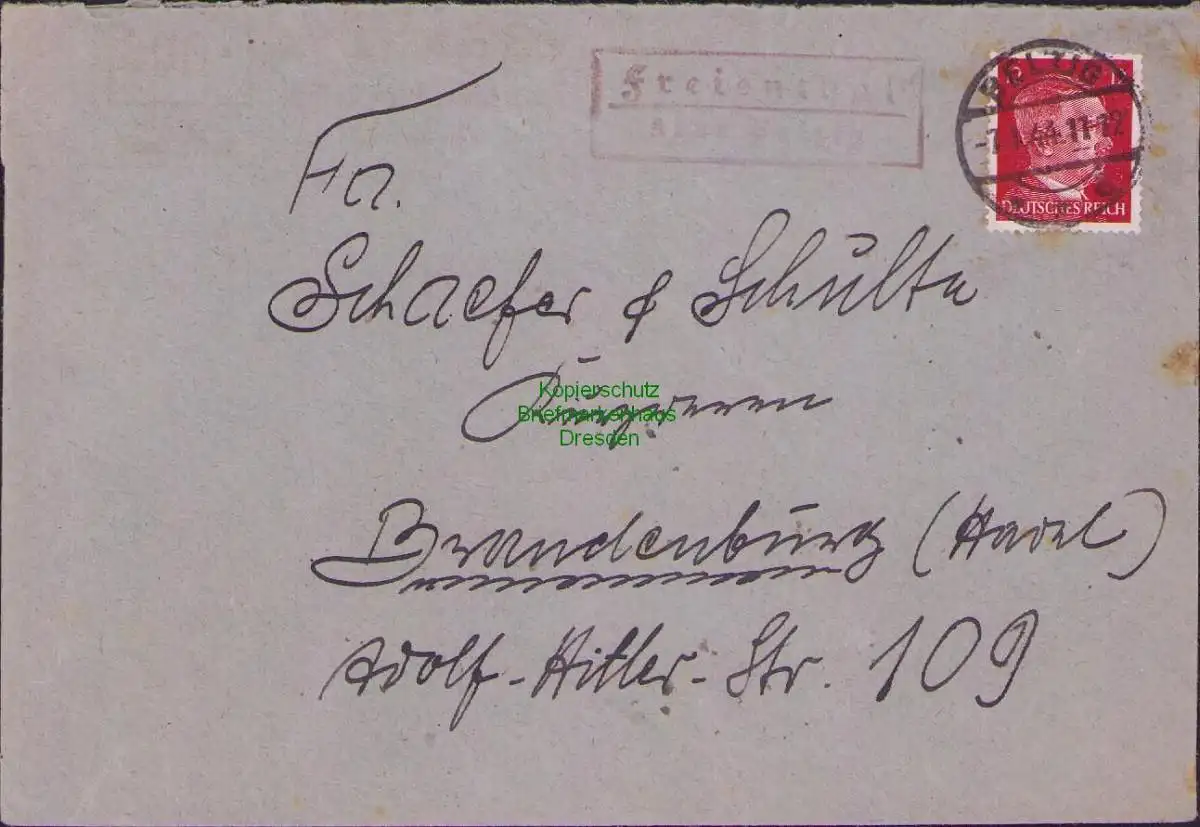 Freienthal
über Belzig
BELZIG
11-12
DEUTSCHES REICH
Fa.
Schaefer & Schulte
Kopierschutz
Briefmarkenhaus
Dresden
Brandenburg (Havel)
Adolf-Hitler-Str. 109